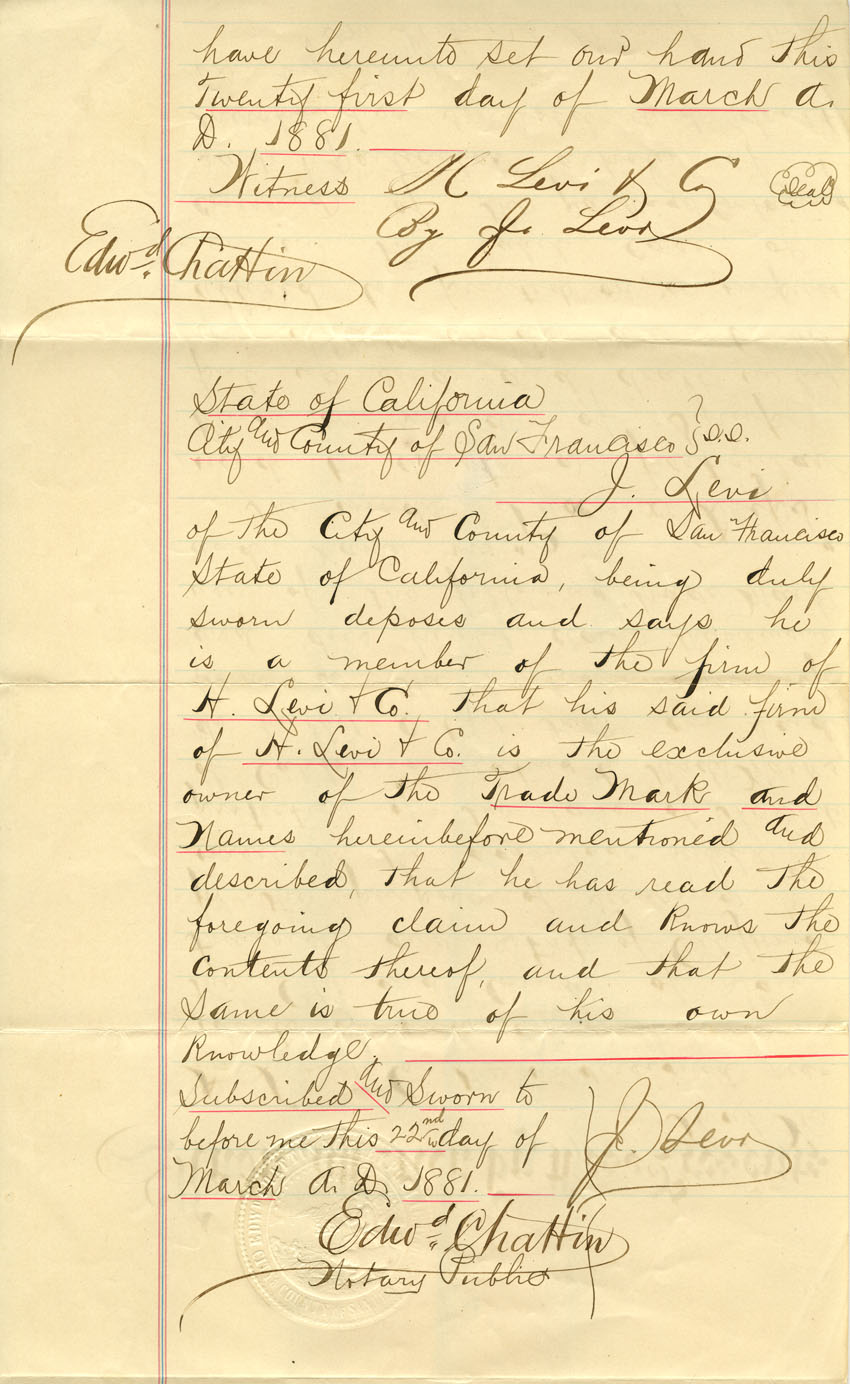 have hereunto set our hand this
Twenty first day of March A.
D. 1881.
Witness H Levi & Co (Seal)
By J. Levi
Edwd. Chattin
State of California
City and County of San Francisco } S.S.
J. Levi
of the City and County of San Francisco
State of California, being duly
sworn deposes and says he
is a member of the firm of
H. Levi & Co. that his said firm
of H. Levi & Co. is the exclusive
owner of the Trade Mark and
Names hereinbefore mentioned and
described, that he has read the
foregoing claim and knows the
contents thereof, and that the
same is true of his own
knowledge.
Subscribed and Sworn to
before me this 22nd day of
March A. D. 1881.
J. Levi
Edwd. Chattin
Notary Public